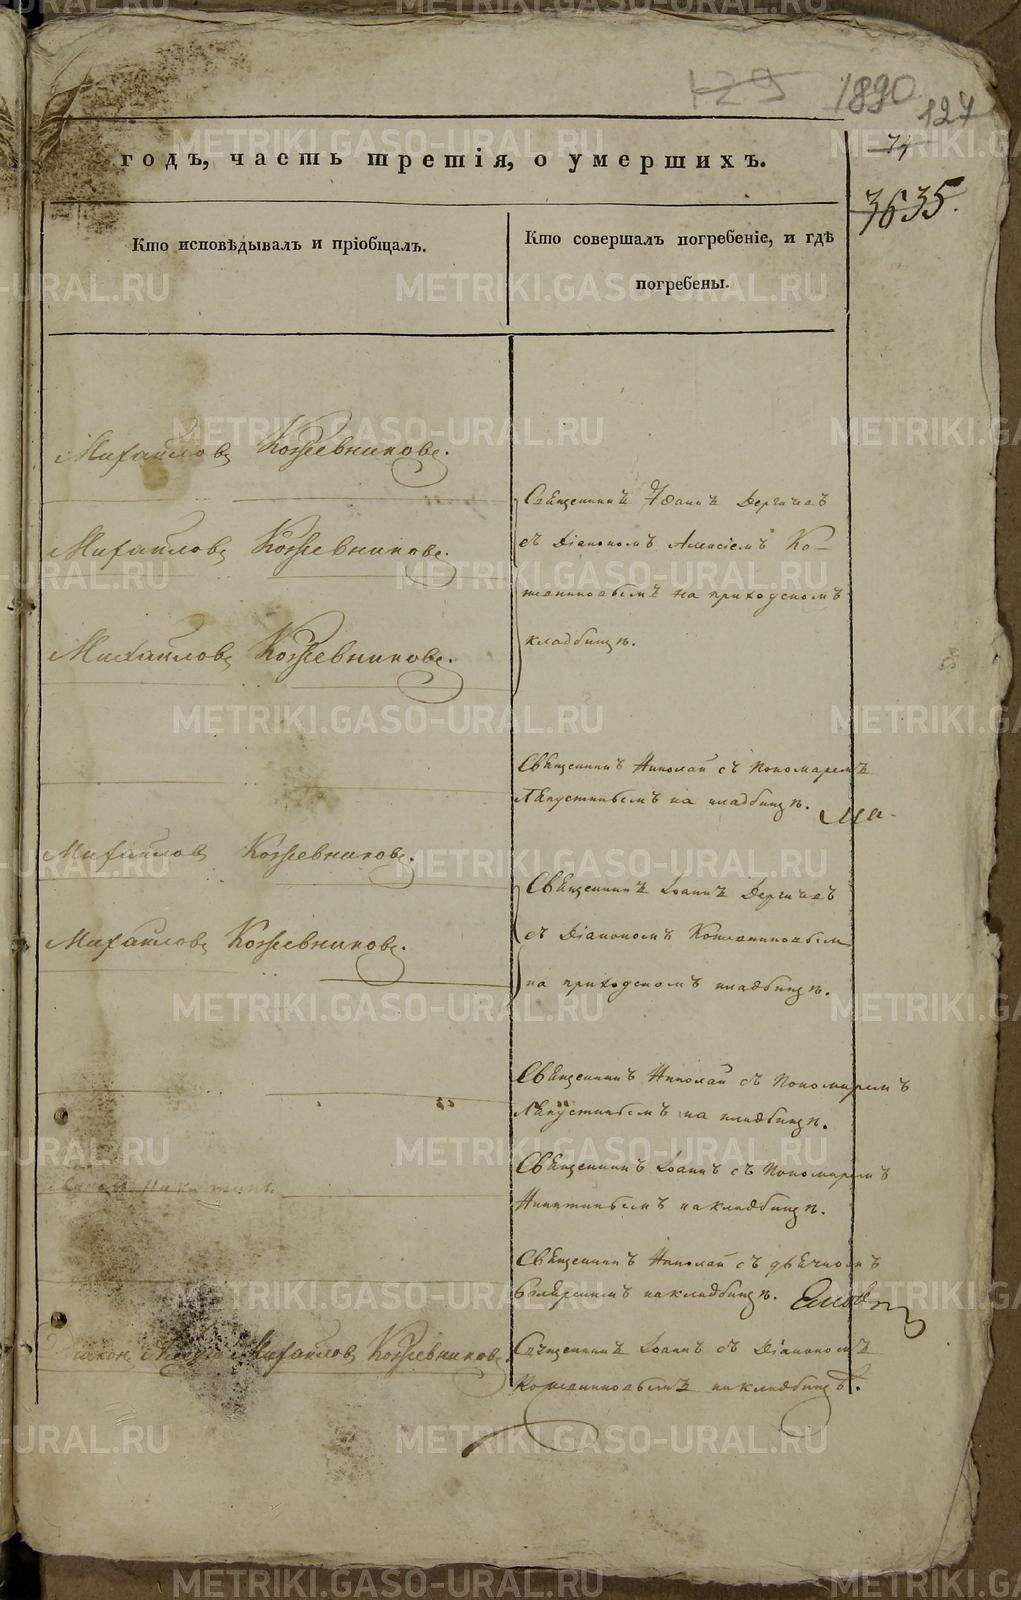 129 1890 127
годъ, часть третія, о умершихъ.
74
3635.
Кто исповѣдывалъ и пріобщалъ.
Кто совершалъ погребеніе, и гдѣ
погребены.
Михайловъ Кожевниковъ.
Священникъ Іоаннъ Дергачевъ
съ Діакономъ Алексіемъ Ко-
жевниковымъ на приходскомъ
кладбищѣ.
Михайловъ Кожевниковъ.
Михайловъ Кожевниковъ.
Священникъ Николай съ Пономаремъ
на кладбищѣ.
Михайловъ Кожевниковъ.
Священникъ Іоаннъ Дергачевъ
съ Діакономъ Кожевниковымъ
на приходскомъ кладбищѣ.
Михайловъ Кожевниковъ.
Священникъ Николай съ Пономаремъ
на кладбищѣ.
Священникъ Іоаннъ съ Пономаремъ
Никитинымъ на кладбищѣ.
Священникъ Николай съ дьячкомъ
на кладбищѣ.
Діаконъ Михайловъ Кожевниковъ.
Священникъ Іоаннъ съ Діакономъ
Кожевниковымъ на кладбищѣ.
METRIKI.GASO-URAL.RU